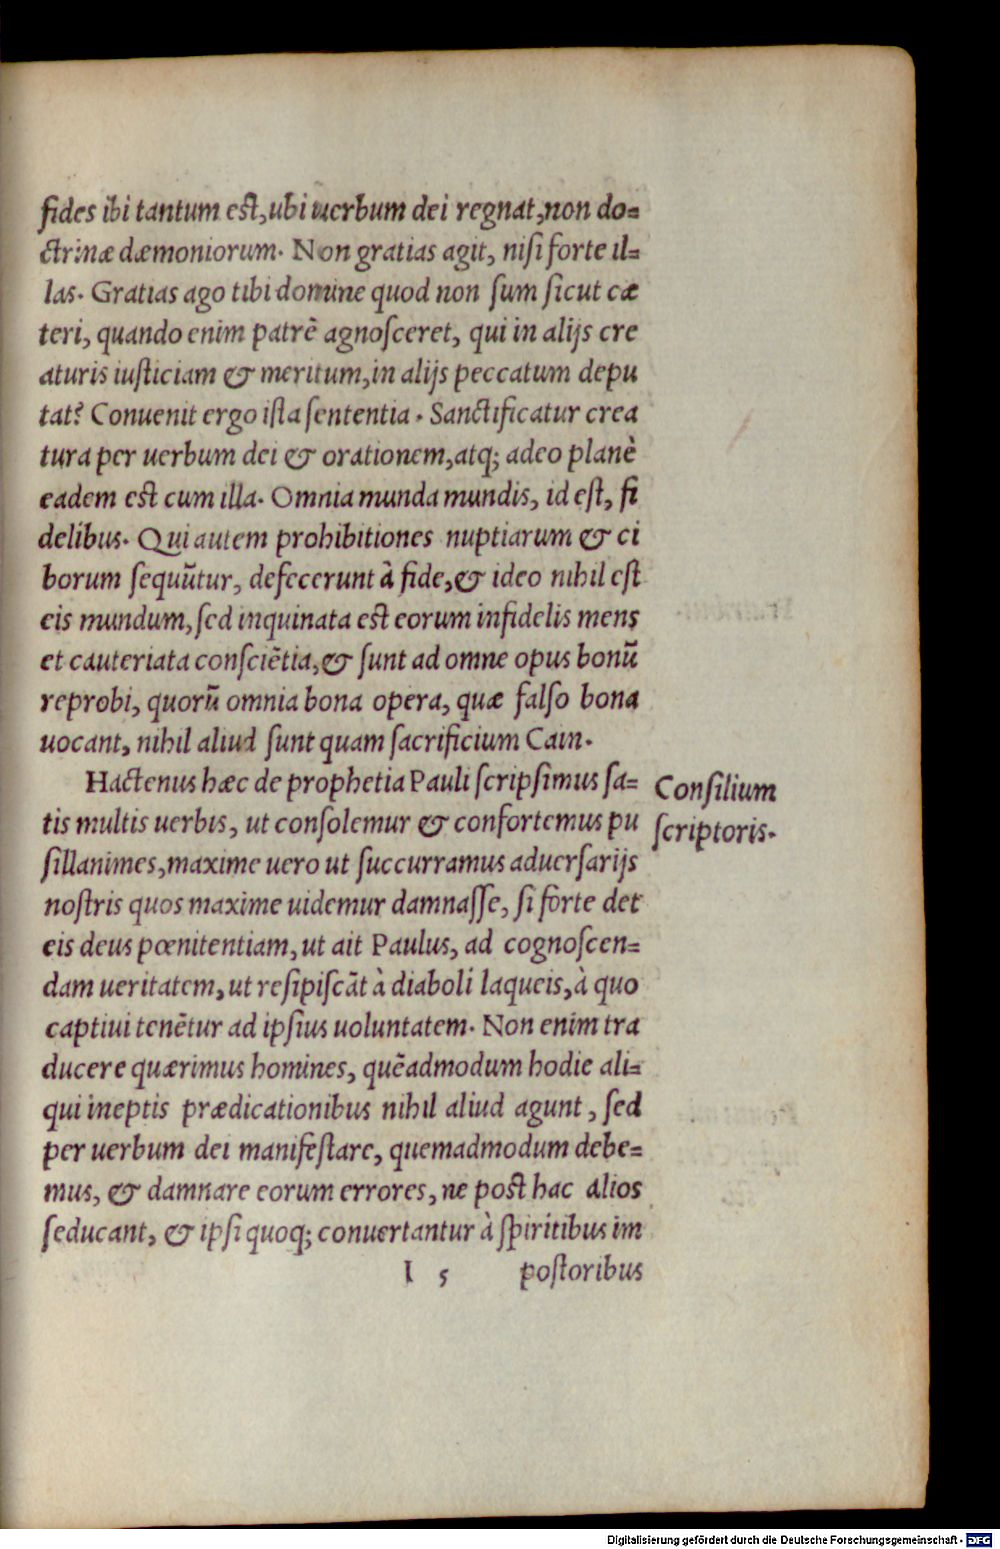 fides ibi tantum est, ubi uerbum dei regnat, non do=
ctrinæ dæmoniorum. Non gratias agit, nisi forte il=
las. Gratias ago tibi domine quod non sum sicut cæ
teri, quando enim patrẽ agnosceret, qui in alijs cre
aturis iusticiam & meritum, in alijs peccatum depu
tat? Conuenit ergo ista sententia. Sanctificatur crea
tura per uerbum dei & orationem, atq; adeo planè
eadem est cum illa. Omnia munda mundis, id est, fi
delibus. Qui autem prohibitiones nuptiarum & ci
borum sequũtur, defecerunt à fide, & ideo nihil est
eis mundum, sed inquinata est eorum infidelis mens
et cauteriata consciẽtia, & sunt ad omne opus bonũ
reprobi, quorũ omnia bona opera, quæ falso bona
uocant, nihil aliud sunt quam sacrificium Cain.
Hactenus hæc de prophetia Pauli scripsimus sa=
tis multis uerbis, ut consolemur & confortemus pu
sillanimes, maxime uero ut succurramus aduersarijs
nostris quos maxime uidemur damnasse, si forte det
eis deus pœnitentiam, ut ait Paulus, ad cognoscen=
dam ueritatem, ut resipiscãt à diaboli laqueis, à quo
captiui tenẽtur ad ipsius uoluntatem. Non enim tra
ducere quærimus homines, quẽadmodum hodie ali=
qui ineptis prædicationibus nihil aliud agunt, sed
per uerbum dei manifestare, quemadmodum debe=
mus, & damnare eorum errores, ne post hac alios
seducant, & ipsi quoq; conuertantur à spiritibus im
I 5 postoribus
Consilium
scriptoris.
Digitalisierung gefördert durch die Deutsche Forschungsgemeinschaft - DFG